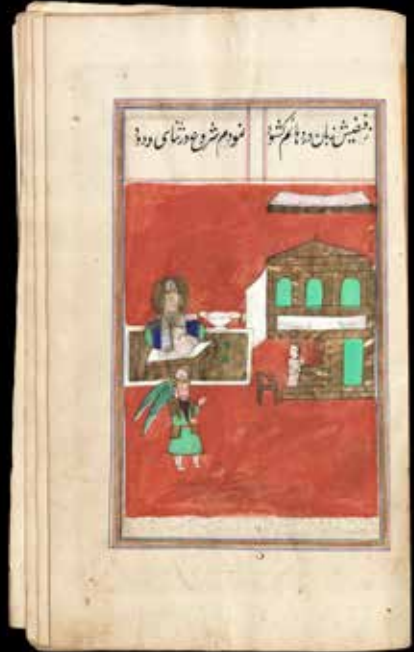 زفیضش زبان در دهانم کشود نمودم شروع در ثنای ودود